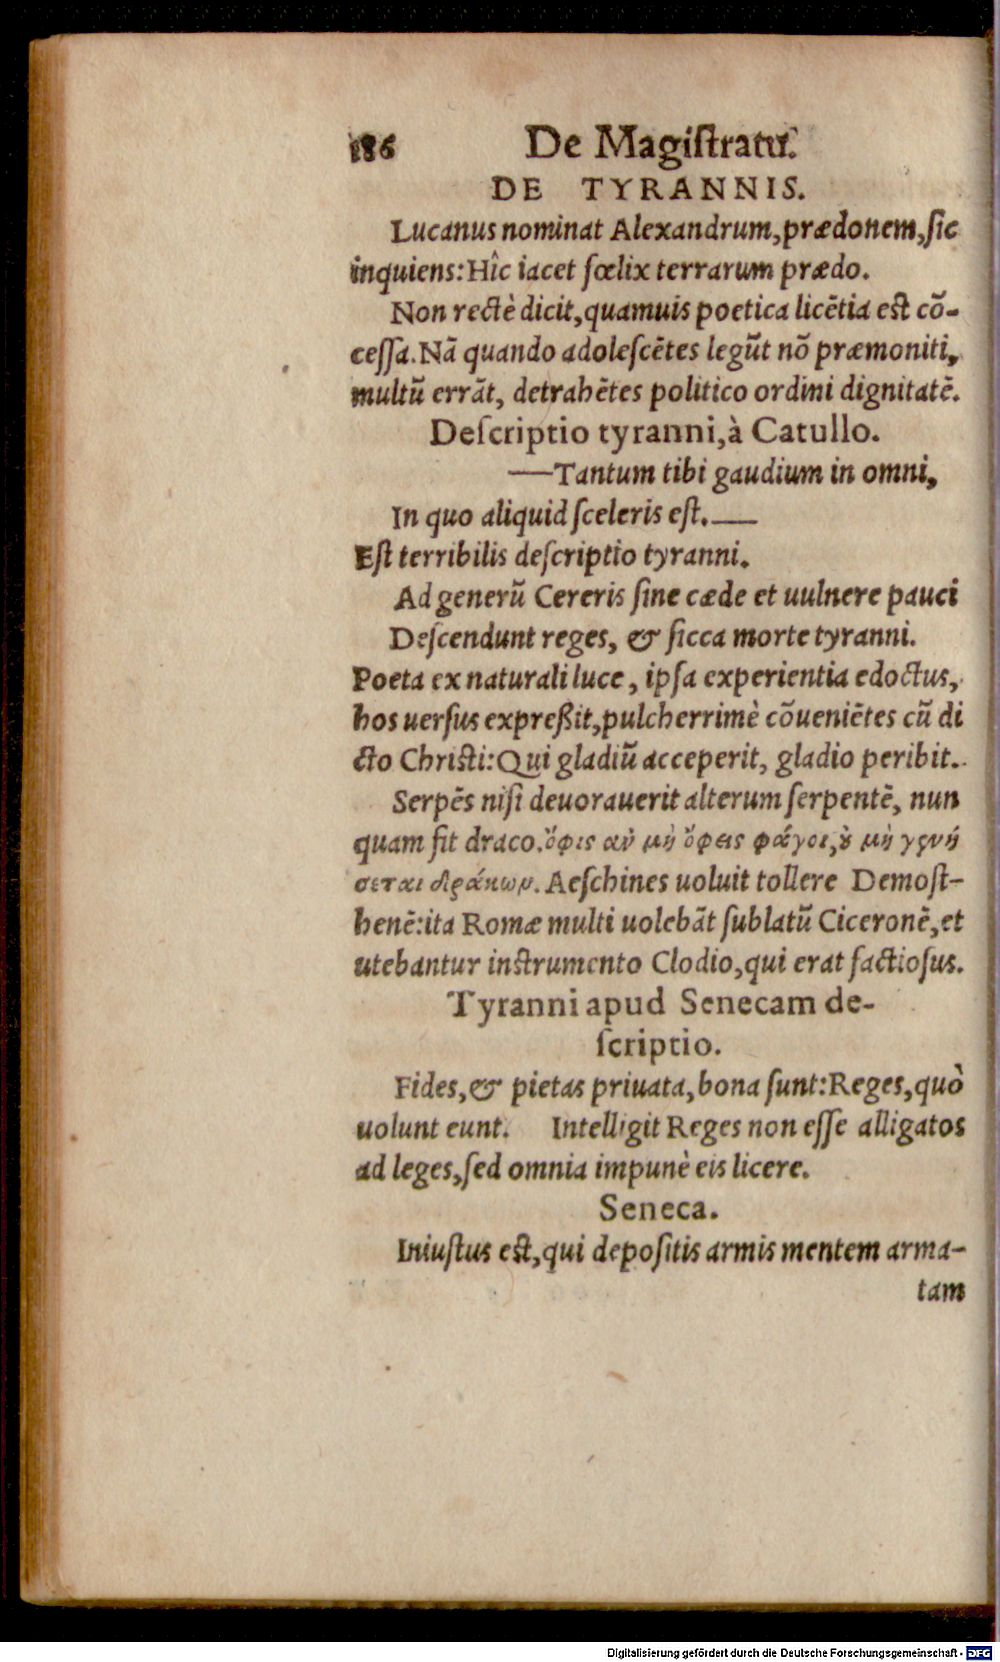 186 De Magiſtratu.
DE TYRANNIS.
Lucanus nominat Alexandrum, prædonem, ſic
inquiens: Hîc iacet fœlix terrarum prædo.
Non rectè dicit, quamuis poetica licẽtia est cõ-
ceſſa. Nã quando adoleſcẽtes legũt nõ præmoniti,
multũ errãt, detrahẽtes politico ordini dignitatẽ.
Deſcriptio tyranni, à Catullo.
—Tantum tibi gaudium in omni,
In quo aliquid ſceleris eſt.—
Eſt terribilis deſcriptio tyranni.
Ad generũ Cereris ſine cæde et uulnere pauci
Deſcendunt reges, & ſicca morte tyranni.
Poeta ex naturali luce, ipſa experientia edoctus,
hos uerſus expreßit, pulcherrimè cõueniẽtes cũ di
cto Christi: Qui gladiũ acceperit, gladio peribit.
Serpẽs niſi deuorauerit alterum ſerpentẽ, nun
quam fit draco. ὄφις ἀν μὴ ὄφεις φάγοι, ȣ̓ μὴ γενή
σεται δράκων. Aeſchines uoluit tollere Demoſt-
henẽ: ita Romæ multi uolebãt ſublatũ Ciceronẽ, et
utebantur instrumento Clodio, qui erat factioſus.
Tyranni apud Senecam de-
ſcriptio.
Fides, & pietas priuata, bona ſunt: Reges, quò
uolunt eunt. Intelligit Reges non eſſe alligatos
ad leges, ſed omnia impunè eis licere.
Seneca.
Iniuſtus est, qui depoſitis armis mentem arma-
tam
Digitalisierung gefördert durch die Deutsche Forschungsgemeinschaft - DFG